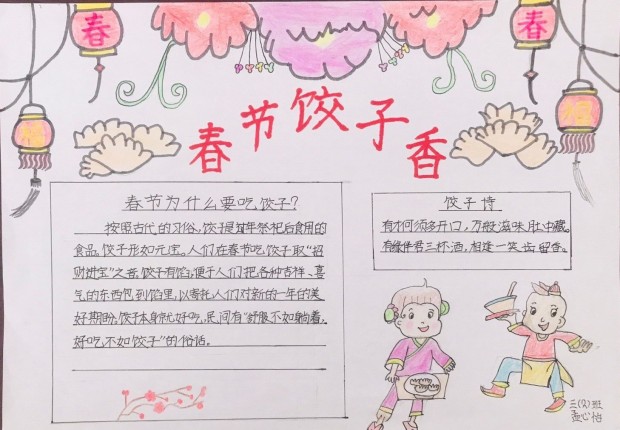 春
春
福
福
春节饺子香
春节为什么要吃饺子?
按照古代的习俗,饺子是其年祭祀后食用的
食品,饺子形如元宝。人们在春节吃饺子取“招
财进宝”之音,饺子有馅,便于人们把各种吉祥、喜
气的东西包到馅里,以寄托人们对新的一年的美
好期盼,饺子本身就好吃,民间有“舒服不如躺着,
好吃不如饺子”的俗话。
饺子诗
有才何须多开口,万般滋味肚中藏。
有缘伴君三杯酒,相逢一笑齿留香。
三(2)班
心怡